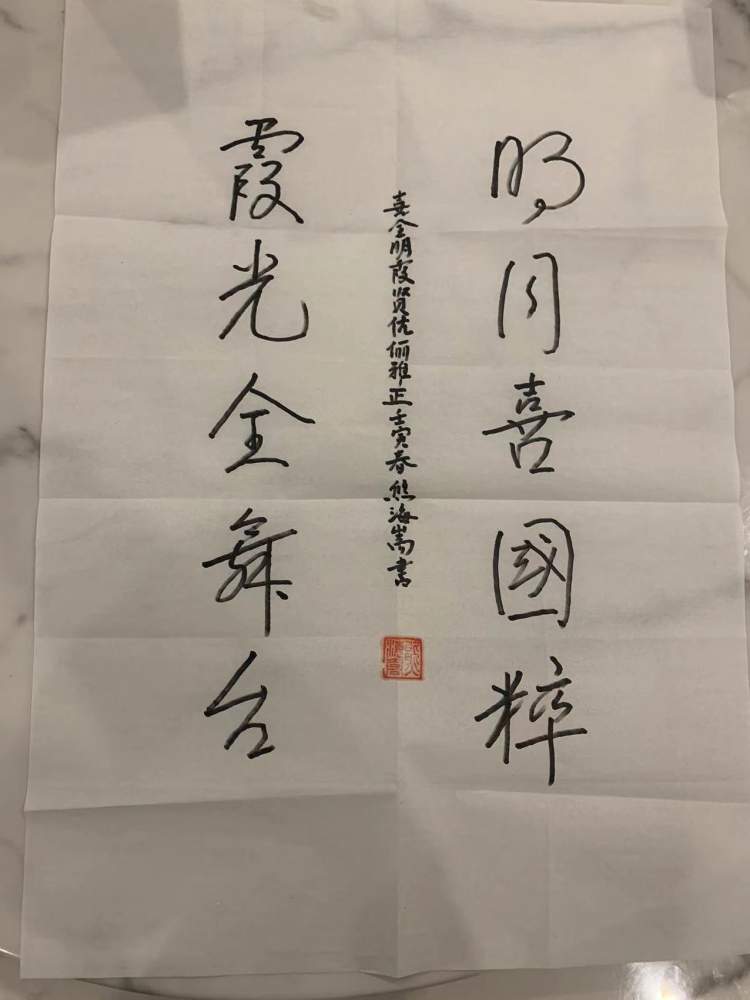 明月喜國粹
霞光全舞台
喜全明霞贤伉俪雅正壬寅春熊海嵩书